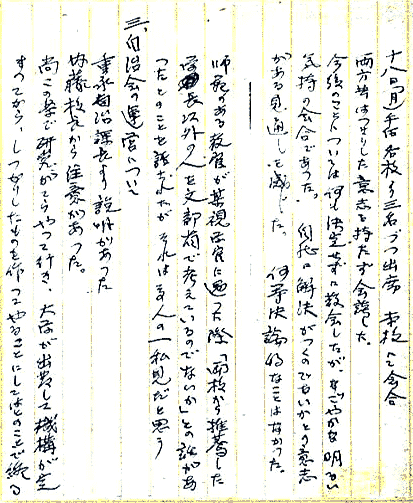 十八日(月)午后各校より三名づつ出席 本校にて会合
両方共はつきりした意志を持たず会談した。
今後のことについては何も決定せずに散会したが、なごやかな明るい
気持の会合であつた。 円和に解決がつくのでないかとの意志
がある見通しを感じた。 何等決論的なことはなかつた。
師範のある教官が某視学官に逢つた際「両校から推薦した
学長以外の人を文部省で考えているのでないか」との話があ
つたとのことを話されたが それは本人の一私見だと思う
三、自治会の運営について
重永自治課長より説明があつた
内藤校長から注意があつた。
尚この案で研究がてらやつて行き、大学が出発して機構が完
すつてから、しつかりしたものを作つてやることにしてはとのことで終る